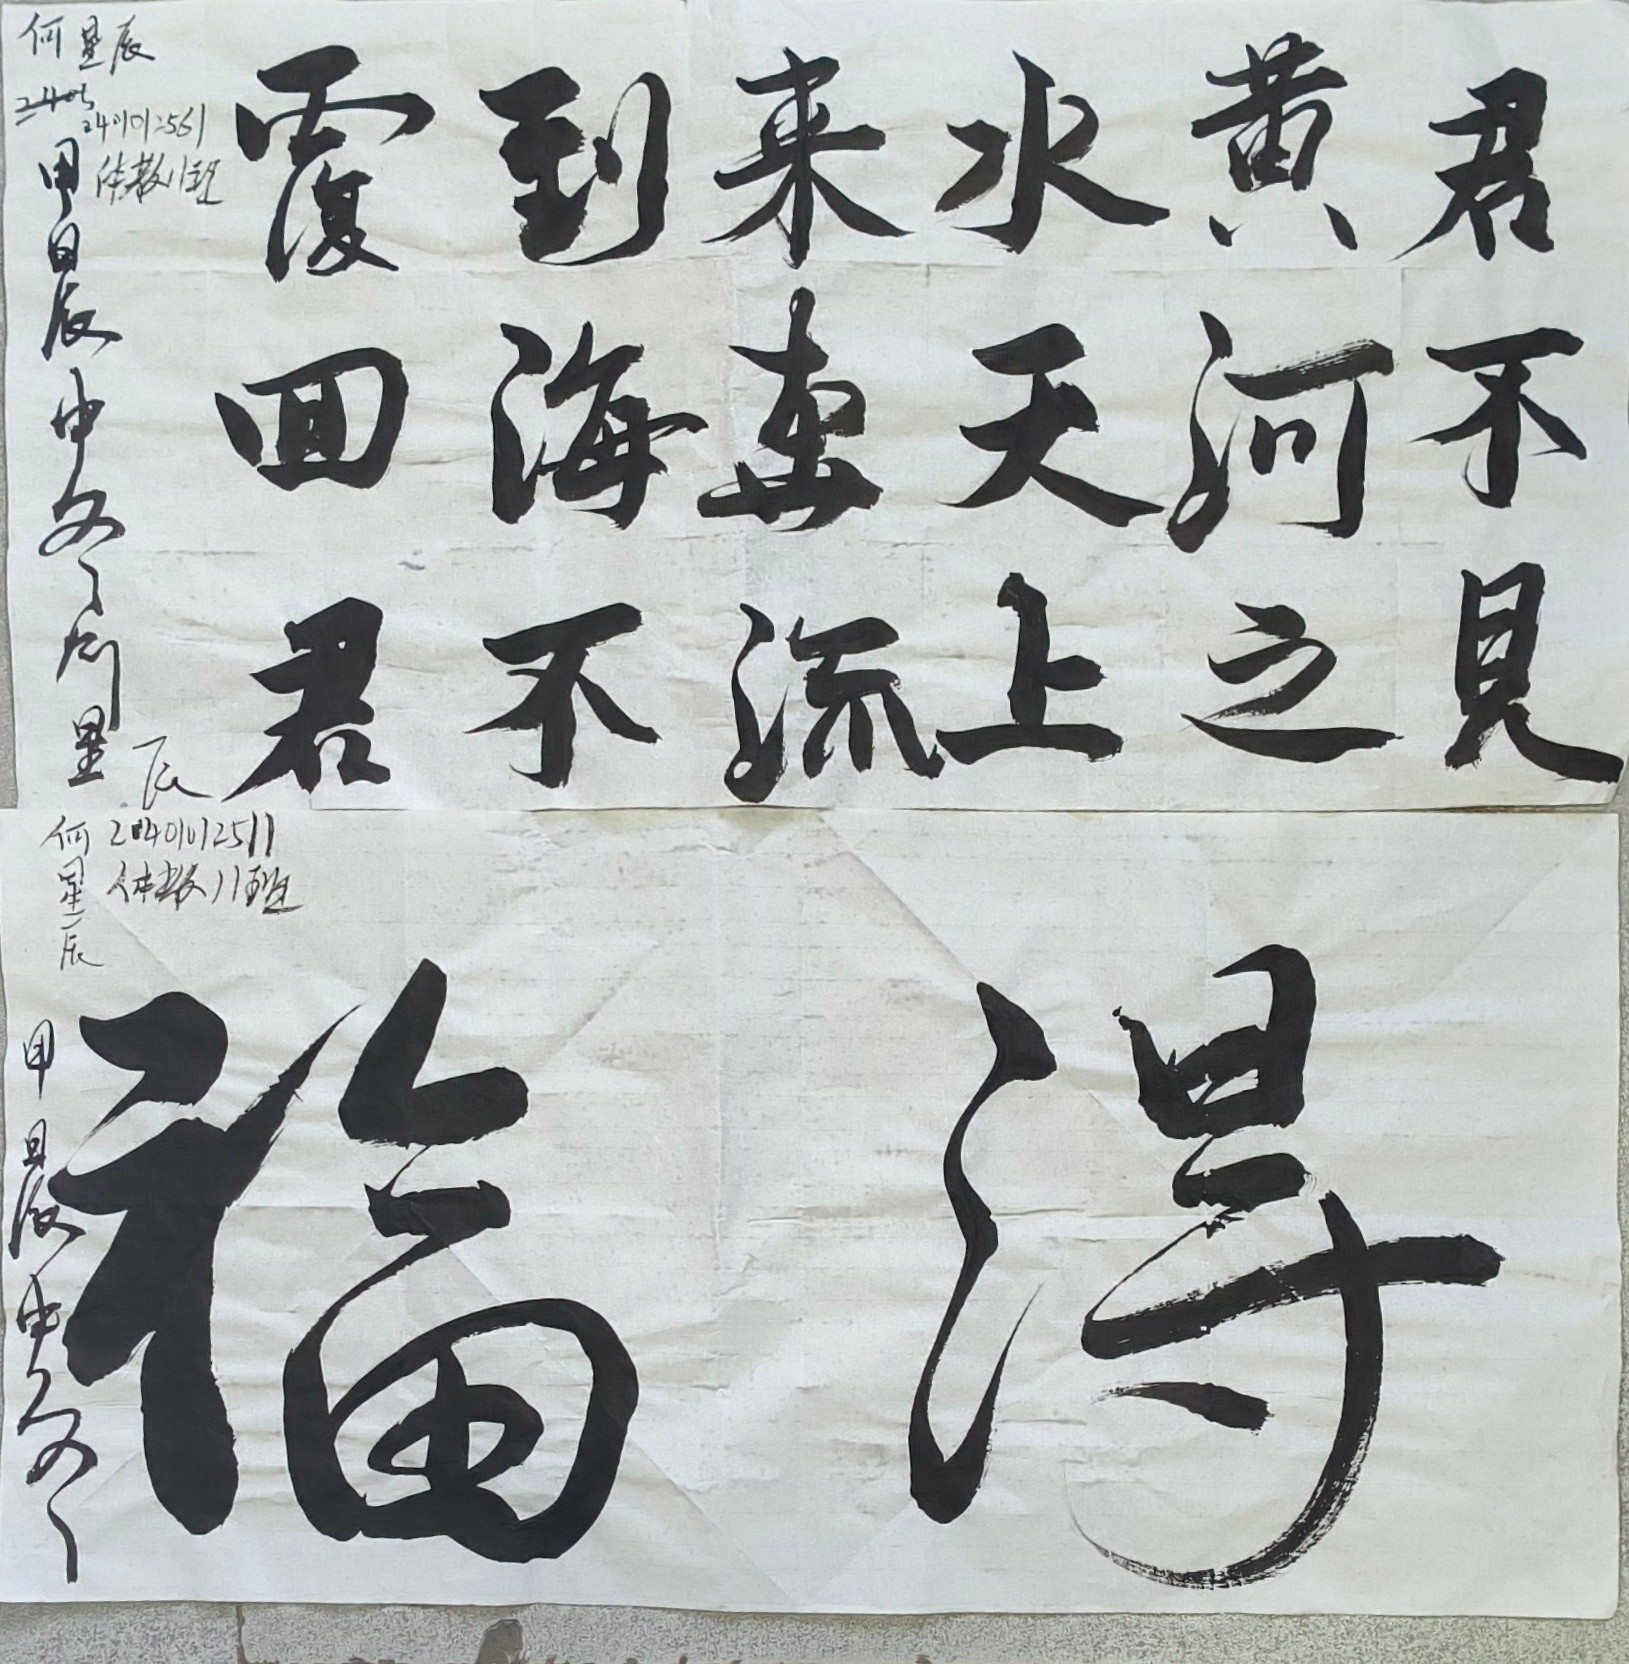 君不見
黄河之
水天上
来奔流
到海不
覆回君
何星辰
体教11班
甲晨中冬何星辰
得福
何星辰
体教11班
甲晨中冬